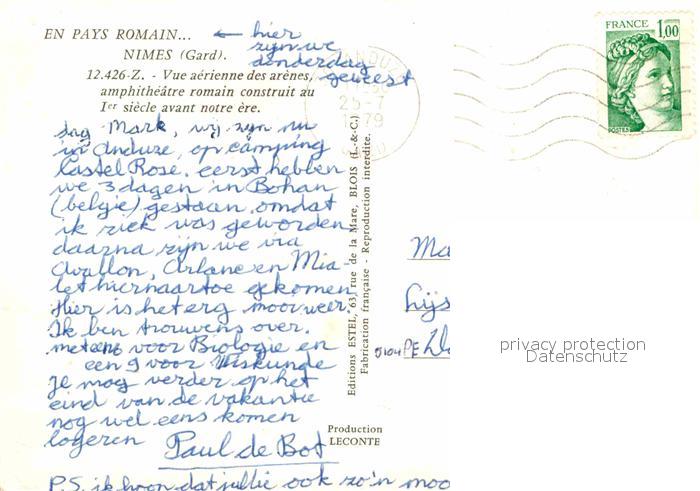 EN PAYS ROMAIN... ← hier
zijn we
NIMES (Gard). donderdag
12.426-Z. - Vue aérienne des arènes, geweest
amphithéâtre romain construit au
Ier siècle avant notre ère.
dag Mark, wij zijn nu
in Anduze, op camping
Castel Rose. eerst hebben
we 3 dagen in Bohan
(belgië) gestaan omdat
ik ziek was geworden
daarna zijn we via
Avallon, Arlane en Mia
let hiernaartoe gekomen
Hier is het erg mooi weer.
Ik ben trouwens over.
meteen voor Biologie en
een 9 voor Wiskunde
Je mag verder op het
eind van de vakantie
nog wel eens komen
logeren Paul de Bot
P.S. ik hoop dat jullie ook zo'n moo
Editions ESTEL, 63, rue de la Mare, BLOIS (L.-&-C.)
Fabrication française - Reproduction interdite.
Production
LECONTE
25-7
1979
FRANCE 1,00
POSTES
Ma
Lijs
PE
privacy protection
Datenschutz